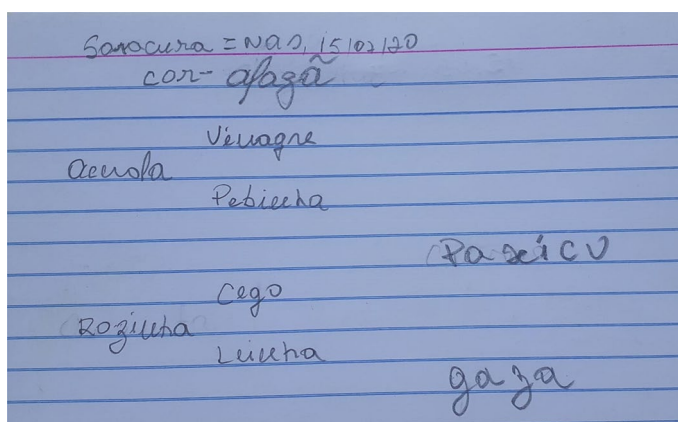 Saracura = NAS, 15/02/20
cor- afagã
Vinagre
Acerola
Pebinha
Paxicu
Cego
Rozinha
Luinha
gaza